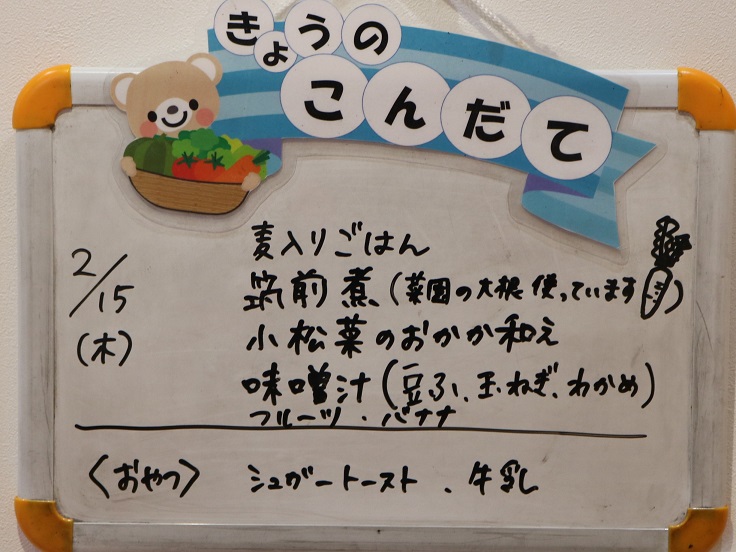 きょうの
こんだて
2/15
(木)
麦入りごはん
筑前煮(菜園の大根使っています)
小松菜のおかか和え
味噌汁(豆ふ、玉ねぎ、わかめ)
フルーツ・バナナ
〈おやつ〉 シュガートースト、牛乳